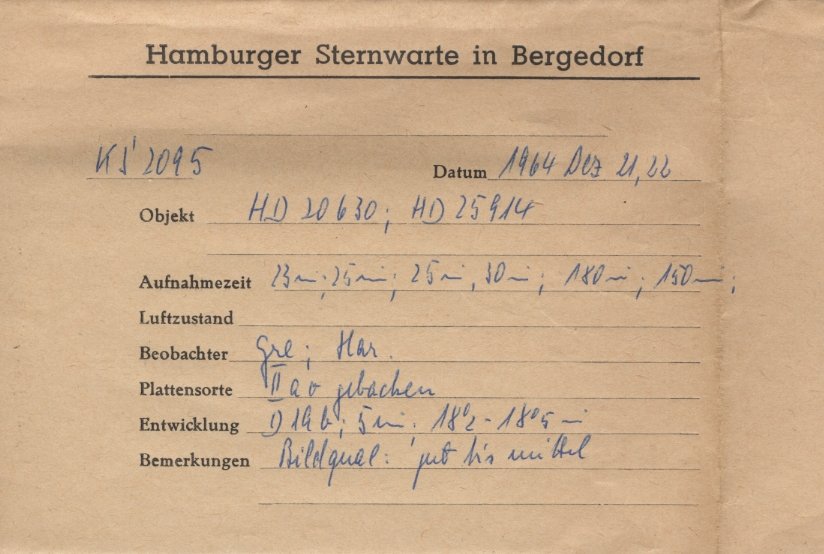 Hamburger Sternwarte in Bergedorf
KS 2095 Datum 1964 Dez 21,22
Objekt HD 20630; HD 25914
Aufnahmezeit 23m; 25m; 25m, 30m; 180m; 150m;
Luftzustand
Beobachter Gre; Har.
Plattensorte IIa o gebacken
Entwicklung D19b; 5m. 18°2 - 18°5
Bemerkungen Bildqual: gut bis mittel